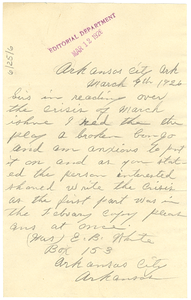 EDITORIAL DEPARTMENT
MAR 13 1926
6/25/6
Arkansas City Ark
March 9th 1926
Sirs in reading over
the Crisis of March
ishue I need the
play a broken banjo
and am anxious to put
it on and as you stat-
ed the person interested
should write the Crisis
as the first part was in
the Febuary Copy please
ans at once.
(Mrs) E. B. White
Box 153
Arkansas City
Arkansas